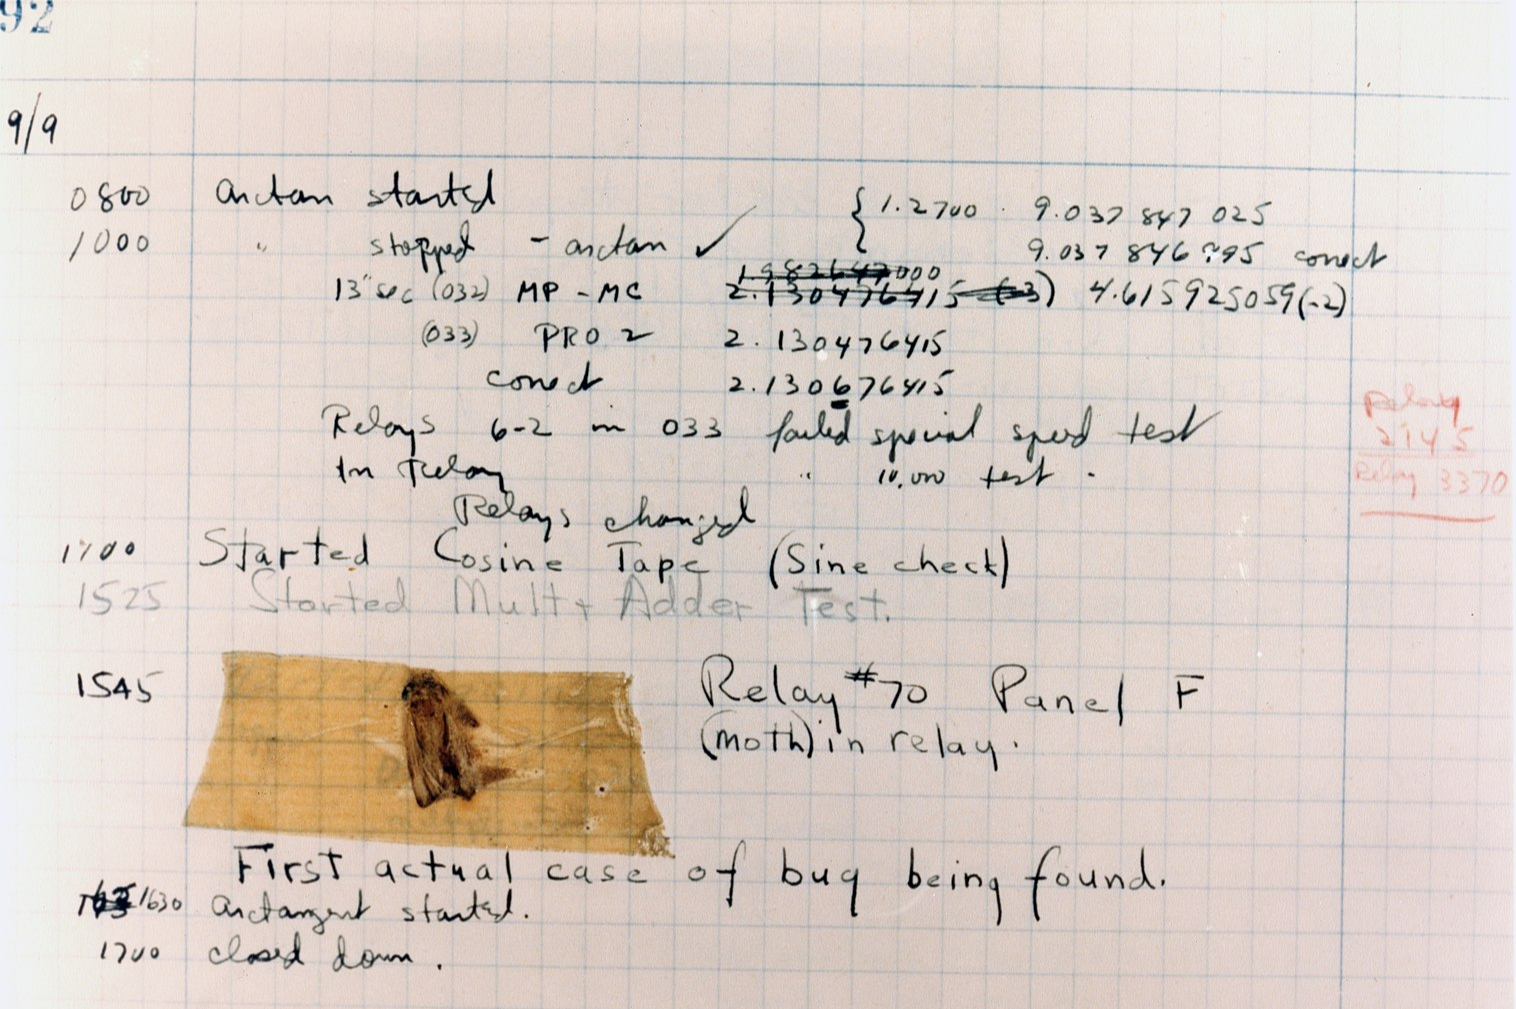 92
9/9
0800 arctan started { 1.2700 9.037 847 025
1000 " stopped - arctan ✓ 9.037 846 795 correct
1.982647000
13" sec (032) MP - MC 2.130476415 (-3) 4.615925059(-2)
(033) PRO 2 2.130476415
correct 2.130676415
Relays 6-2 in 033 failed special speed test
In Relay " 10.000 test .
Relay
2145
Relay 3370
Relays changed
1100 Started Cosine Tape (Sine check)
1525 Started Mult+ Adder Test.
1545 Relay #70 Panel F
(moth) in relay.
First actual case of bug being found.
1630 arctangent started.
1700 closed down .